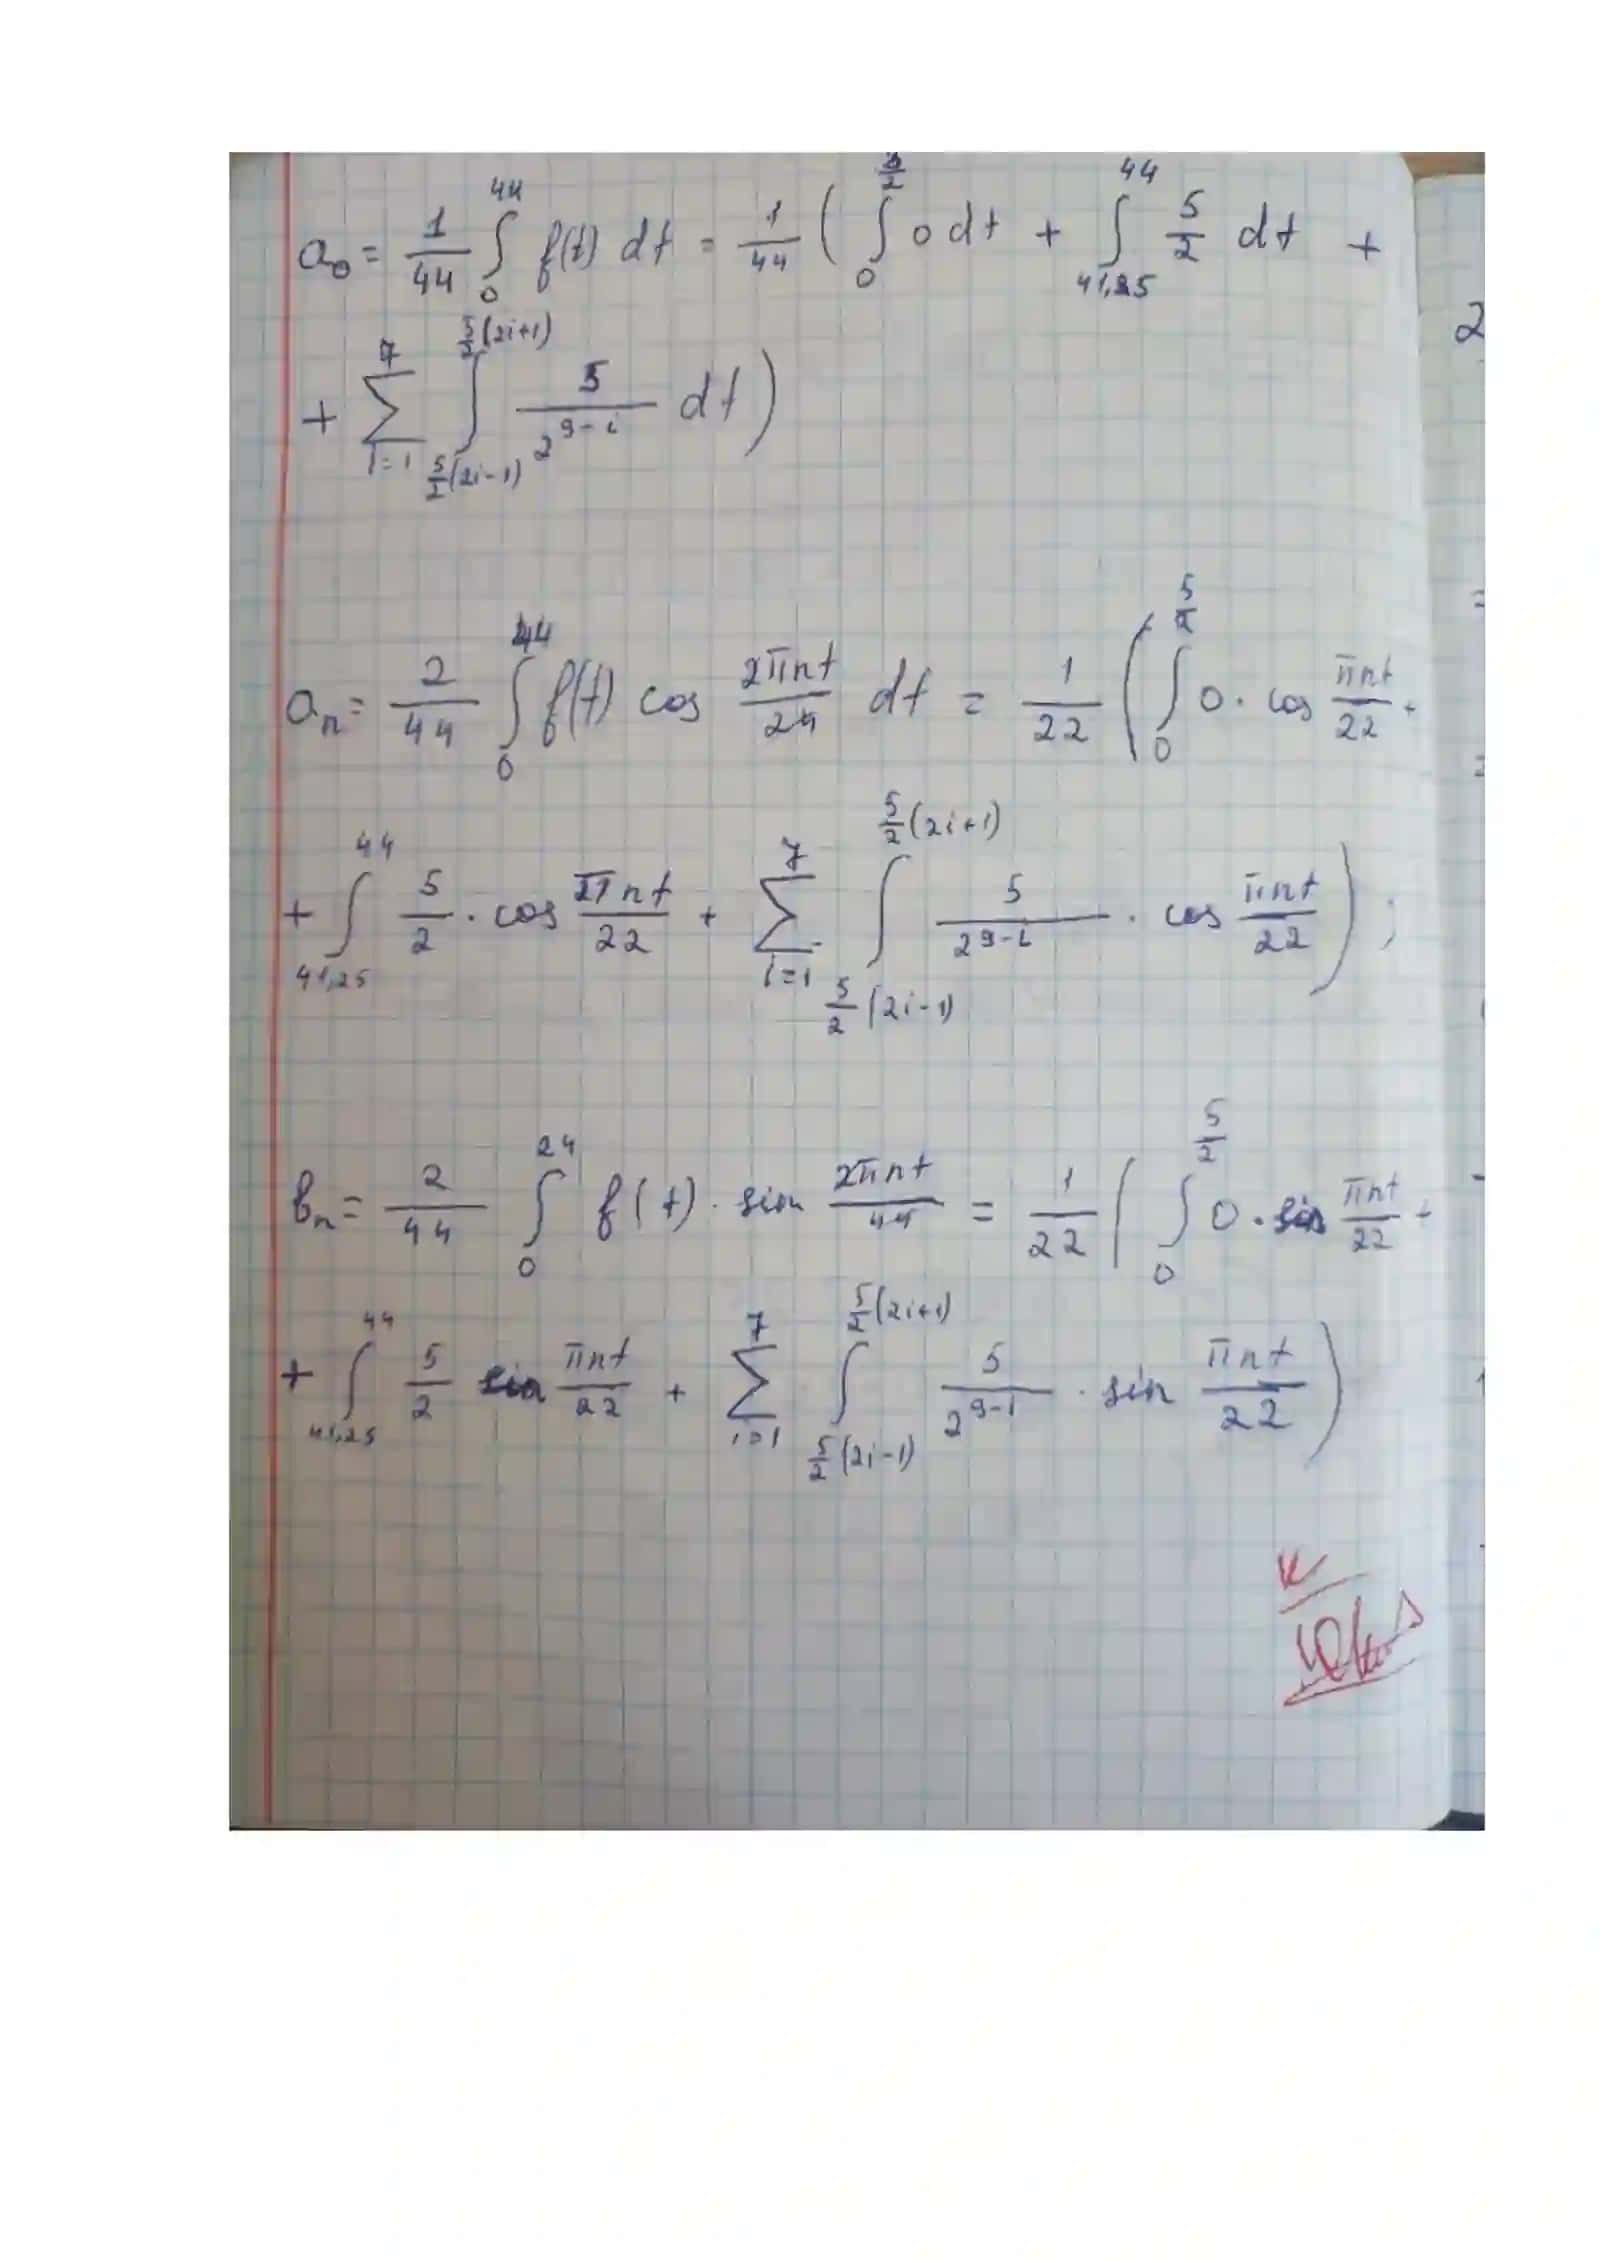 a₀ = 1/44 ∫₀⁴⁴ f(t) dt = 1/44 ( ∫₀^{5/2} 0 dt + ∫_{41,25}^{44} 5/2 dt +
+ ∑_{i=1}^{7} ∫_{5/2(2i-1)}^{5/2(2i+1)} 5/2^{9-i} dt )
aₙ = 2/44 ∫₀⁴⁴ f(t) cos 2πnt/24 dt = 1/22 ( ∫₀^{5/2} 0 · cos πnt/22 +
+ ∫_{41,25}^{44} 5/2 · cos πnt/22 + ∑_{i=1}^{7} ∫_{5/2(2i-1)}^{5/2(2i+1)} 5/2^{9-i} · cos πnt/22 ) ;
bₙ = 2/44 ∫₀²⁴ f(t) · sin 2πnt/44 = 1/22 ( ∫₀^{5/2} 0 · sin πnt/22 +
+ ∫_{41,25}^{44} 5/2 sin πnt/22 + ∑_{i=1}^{7} ∫_{5/2(2i-1)}^{5/2(2i+1)} 5/2^{9-i} · sin πnt/22 )
2